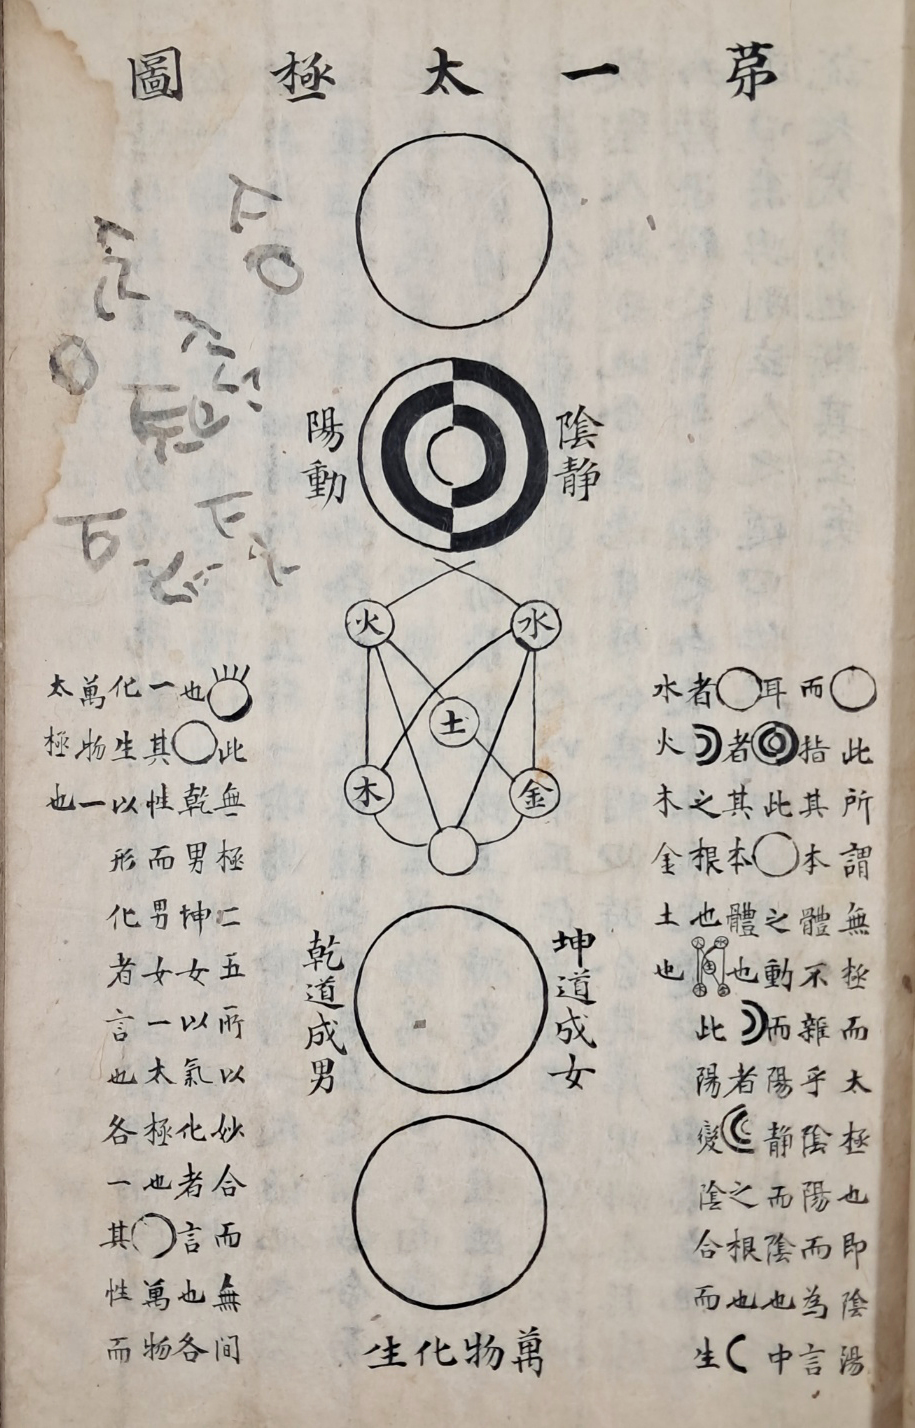 苐一太極圖
陽動
陰静
火
水
土
木
金
乾道成男
坤道成女
萬物化生
○此所謂無極而太極也即陰湯
而指其本體不雜乎陰陽而為言
耳此○之動而陽静而陰也中
○者其本體也者之根也
者之根也此陽變陰合而生
水火木金土也
此無極二五所以妙合而無间
也○乾男坤女以氣化者言也各
一其性而男女一太極也○萬物
化生以形化者言也各一其性而
萬物一
太極也